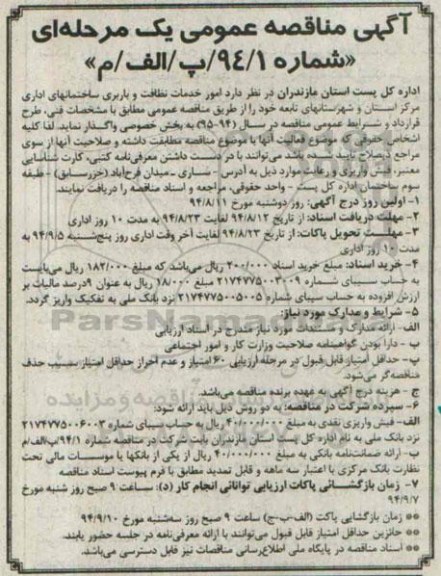 آگهی مناقصه عمومی یک مرحله‌ای
«شماره ۹۴/۱/پ/الف/م»
اداره کل پست استان مازندران در نظر دارد امور خدمات نظافت و باربری ساختمانهای اداری
مرکز استان و شهرستانهای تابعه خود را از طریق مناقصه عمومی مطابق با مشخصات فنی، طرح
قرارداد و شرایط عمومی مناقصه در سال (۹۴-۹۵) به بخش خصوصی واگذار نماید. لذا کلیه
اشخاص حقوقی که موضوع فعالیت آنها با موضوع مناقصه مطابقت داشته و صلاحیت آنها از سوی
مراجع ذیصلاح تایید شده باشد می‌توانند با در دست داشتن معرفی‌نامه کتبی، کارت شناسایی
معتبر، فیش واریزی و رعایت موارد ذیل به آدرس - ساری - میدان فرح‌آباد (خزر سابق) - طبقه
سوم ساختمان اداره کل پست - واحد حقوقی، مراجعه و اسناد مناقصه را دریافت نمایند.
۱- اولین روز درج آگهی: روز دوشنبه مورخ ۹۴/۸/۱۱
۲- مهلت دریافت اسناد: از تاریخ ۹۴/۸/۱۲ لغایت ۹۴/۸/۲۳ به مدت ۱۰ روز اداری
۳- مهلت تحویل پاکات: از تاریخ ۹۴/۸/۲۳ لغایت آخر وقت اداری روز پنج‌شنبه ۹۴/۹/۵ به
مدت ۱۰ روز اداری
۴- خرید اسناد: مبلغ خرید اسناد ۲۰۰/۰۰۰ ریال می‌باشد که مبلغ ۱۸۲/۰۰۰ ریال می‌بایست
به حساب سیبای شماره ۲۱۷۴۷۷۵۰۰۳۰۰۹ مبلغ ۱۸/۰۰۰ ریال به عنوان ۹درصد مالیات بر
ارزش افزوده به حساب سیبای شماره ۲۱۷۴۷۷۵۰۰۵۰۰۵ نزد بانک ملی به تفکیک واریز گردد.
۵- شرایط و مدارک مورد نیاز:
الف - ارائه مدارک و مستندات مورد نیاز مندرج در اسناد ارزیابی
ب - دارا بودن گواهینامه صلاحیت وزارت کار و امور اجتماعی
پ- حداقل امتیاز قابل قبول در مرحله ارزیابی ۶۰ امتیاز و عدم احراز حداقل امتیاز بسبب حذف
مناقصه‌گر می‌شود.
ج - هزینه درج آگهی به عهده برنده مناقصه می‌باشد.
۶- سپرده شرکت در مناقصه: به دو روش ذیل باید ارائه شود:
الف- فیش واریزی نقدی به مبلغ ۴۰/۰۰۰/۰۰۰ ریال به حساب سیبای شماره ۲۱۷۴۷۷۵۰۰۶۰۰۲
نزد بانک ملی به نام اداره کل پست استان مازندران بابت شرکت در مناقصه شماره ۹۴/۱/پ/الف/م
ب- ارائه ضمانت‌نامه بانکی به مبلغ ۴۰/۰۰۰/۰۰۰ ریال از یکی از بانکها یا موسسات مالی تحت
نظارت بانک مرکزی با اعتبار سه ماهه و قابل تمدید مطابق با فرم پیوست اسناد مناقصه
۷- زمان بازگشائی پاکات ارزیابی توانائی انجام کار (د): ساعت ۹ صبح روز شنبه مورخ
۹۴/۹/۷
** زمان بازگشایی پاکت (الف-ب-ج) ساعت ۹ صبح روز سه‌شنبه مورخ ۹۴/۹/۱۰
** حائزین حداقل امتیاز قابل قبول می‌توانند با ارائه معرفی‌نامه در جلسه حضور یابند.
** اسناد مناقصه در پایگاه ملی اطلاع‌رسانی مناقصات نیز قابل دسترسی می‌باشد.
ParsNamad